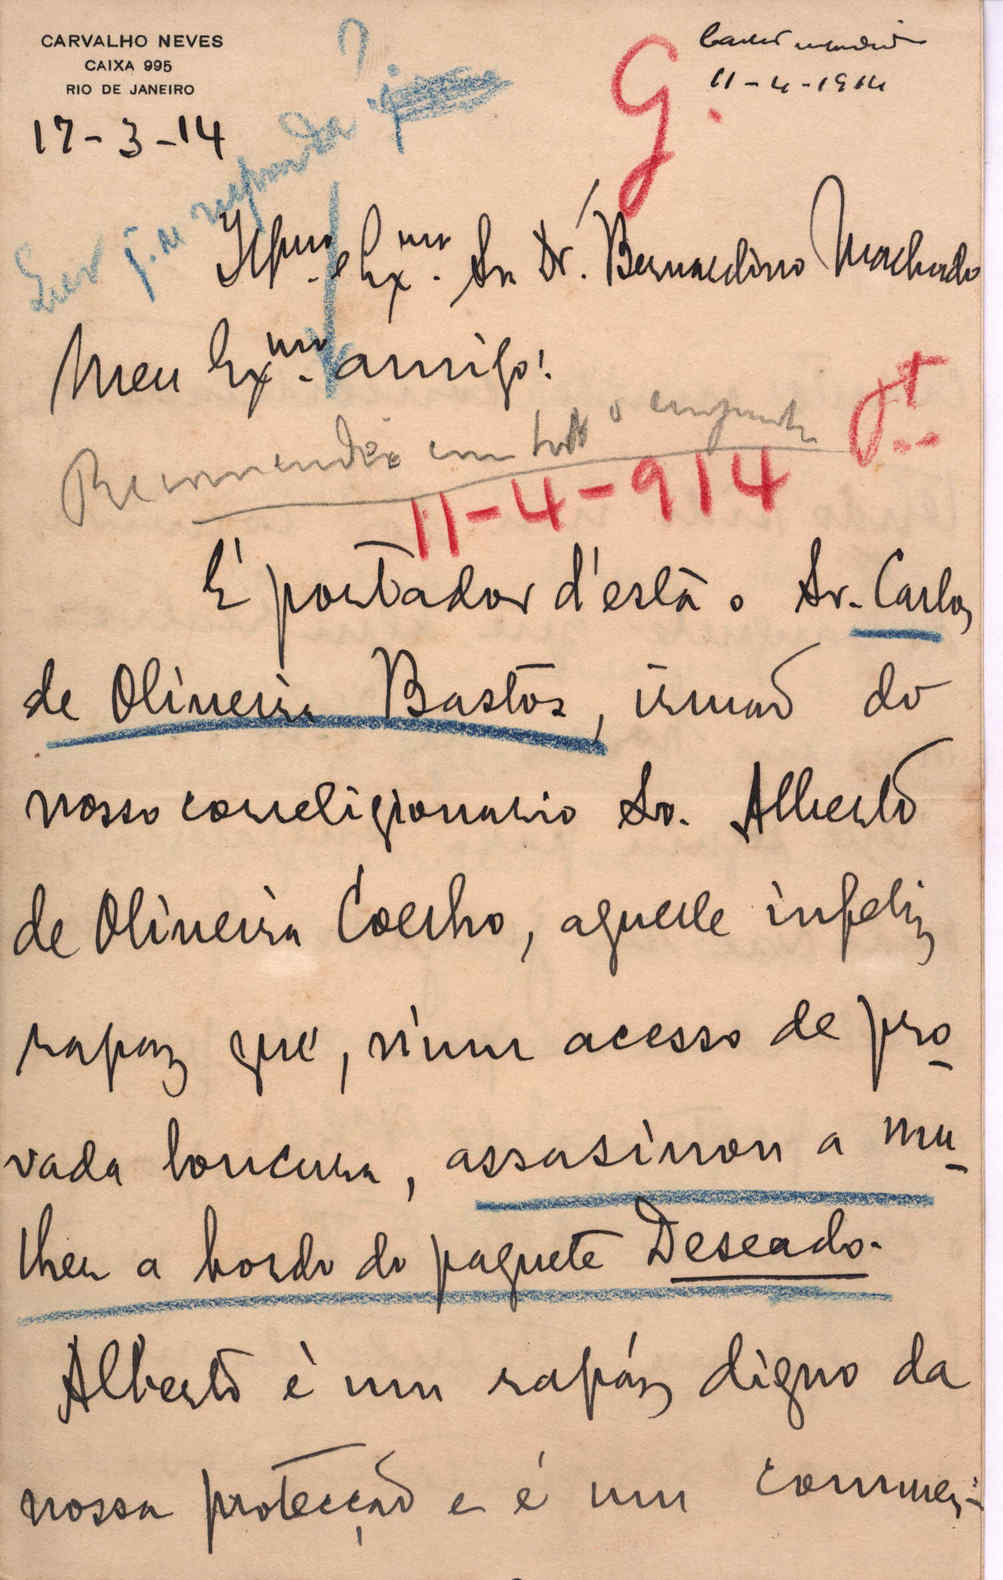 CARVALHO NEVES
CAIXA 995
RIO DE JANEIRO
17-3-14
11-4-1914
G.
Illmo. e Exmo. Sr. Dr. Bernardino Machado
Meu Exmo. amigo!
Recommendei em
11-4-914
É portador d'esta o Sr. Carlos
de Oliveira Bastos, irmão do
nosso correligionario Sr. Alberto
de Oliveira Coelho, aquelle infeliz
rapaz que, n'um acesso de pro-
vada loucura, assasinou a mu-
lher a bordo do paquete Deseado.
Alberto é um rapáz digno da
nossa protecção e é um commer-